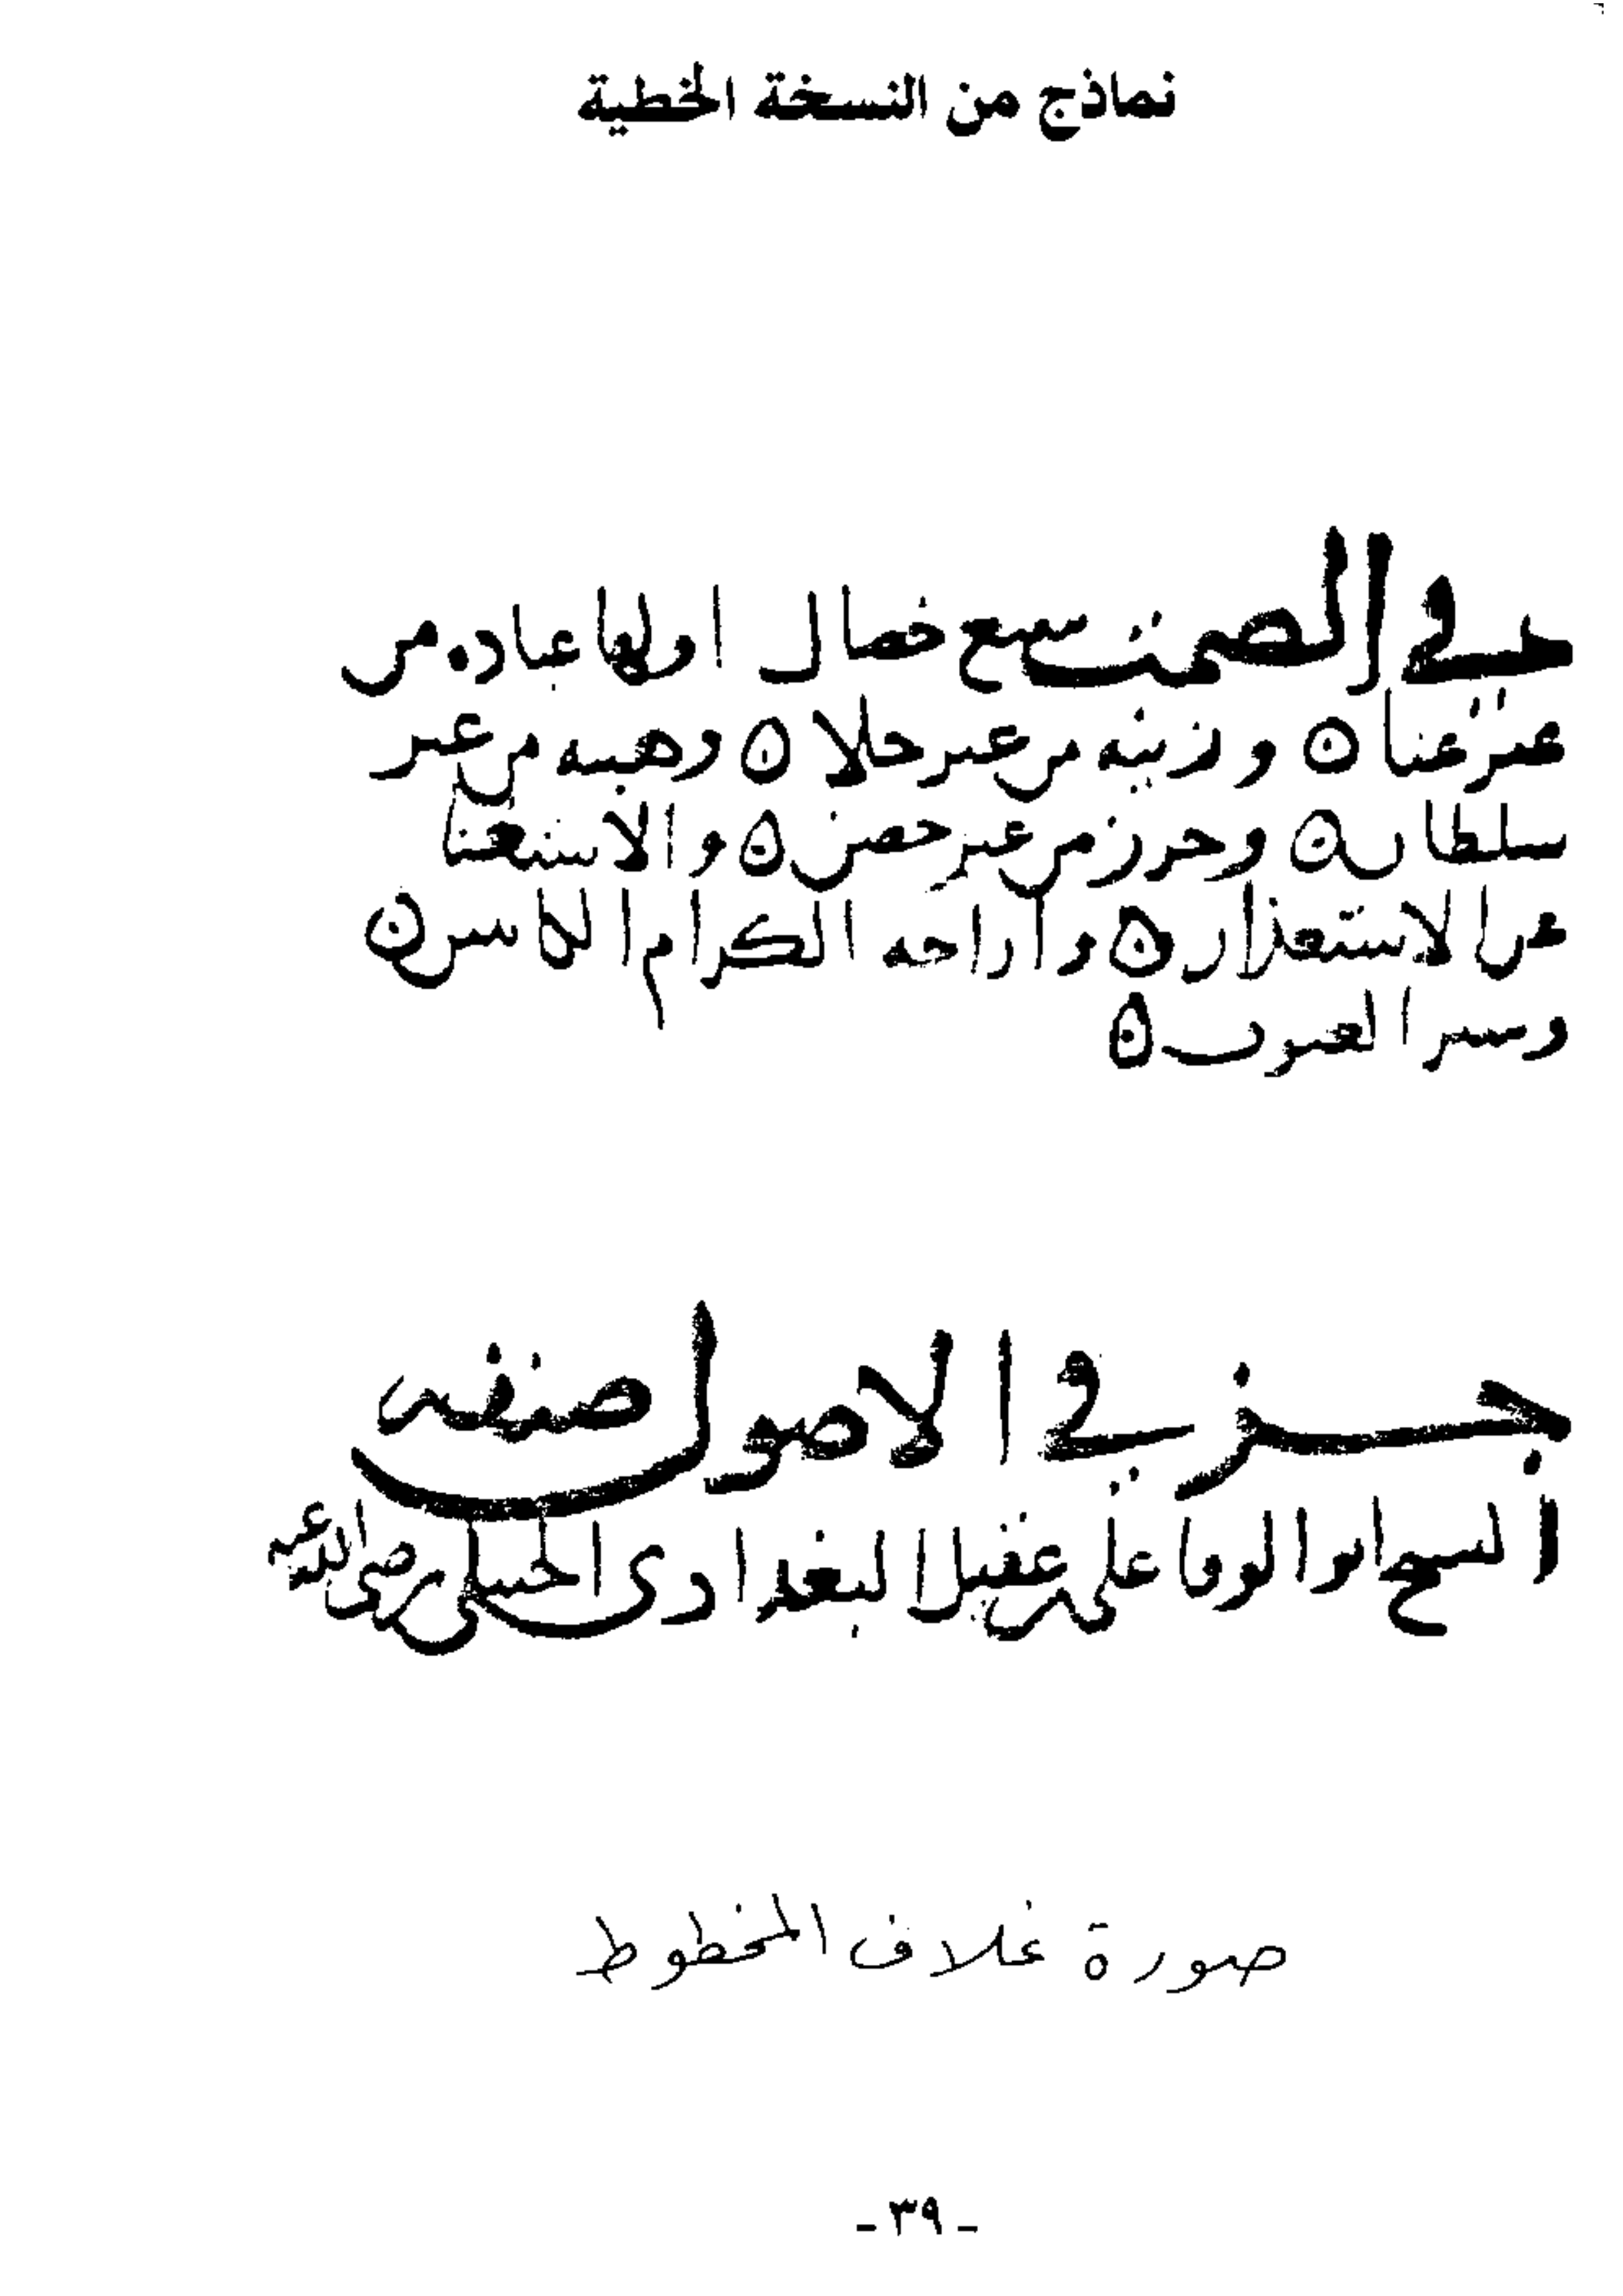 نماذج من النسخة الخطية
في الصمت سبع خصال اولها عباده من
غير عنا ٥ وزينه من غير حلا ٥ وهيبه من غير
سلطان ٥ وحرز من غير حصن ٥ والاستغنا
عن الاستعذار ٥ واراحه الكرام الكاتبين ٥
وستر العيوب ٥
جز في الاصول صنفه
الشيخ ابو الوفا علي بن عقيل البغدادي الحنبلي رضي الله عنه
صورة غلاف المخطوط
- ٣٩ -